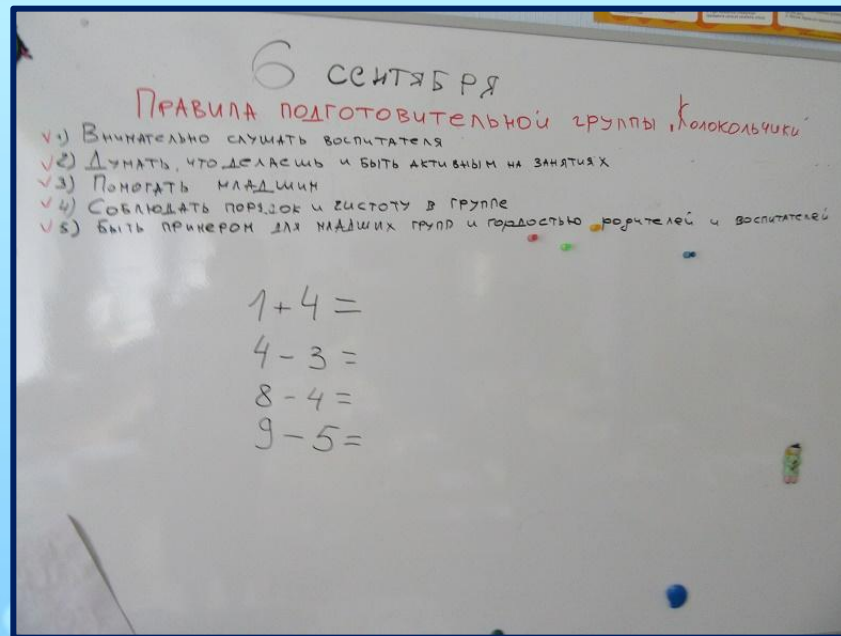 6 СЕНТЯБРЯ
ПРАВИЛА ПОДГОТОВИТЕЛЬНОЙ ГРУППЫ „Колокольчики"
√ 1) Внимательно слушать воспитателя
√ 2) Думать, что делаешь и быть активным на занятиях
√ 3) Помогать младшим
√ 4) Соблюдать порядок и чистоту в группе
√ 5) быть примером для младших групп и гордостью родителей и воспитателей
1 + 4 =
4 - 3 =
8 - 4 =
9 - 5 =